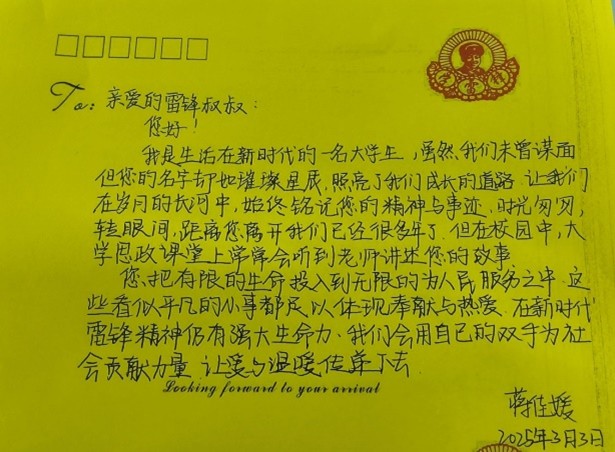 To: 亲爱的雷锋叔叔:
您好!
我是生活在新时代的一名大学生,虽然我们未曾谋面
但您的名字却如璀璨星辰,照亮了我们成长的道路.让我们
在岁月的长河中,始终铭记您的精神与事迹.时光匆匆,
转眼间,距离您离开我们已经很多年了.但在校园中,大
学思政课堂上常常会听到老师讲述您的故事
您把有限的生命投入到无限的为人民服务之中.这
些看似平凡的小事都足以体现奉献与热爱.在新时代
雷锋精神仍有强大生命力、我们会用自己的双手为社
会贡献力量 让爱与温暖传递下去
Looking forward to your arrival
蒋佳媛
2025年3月3日